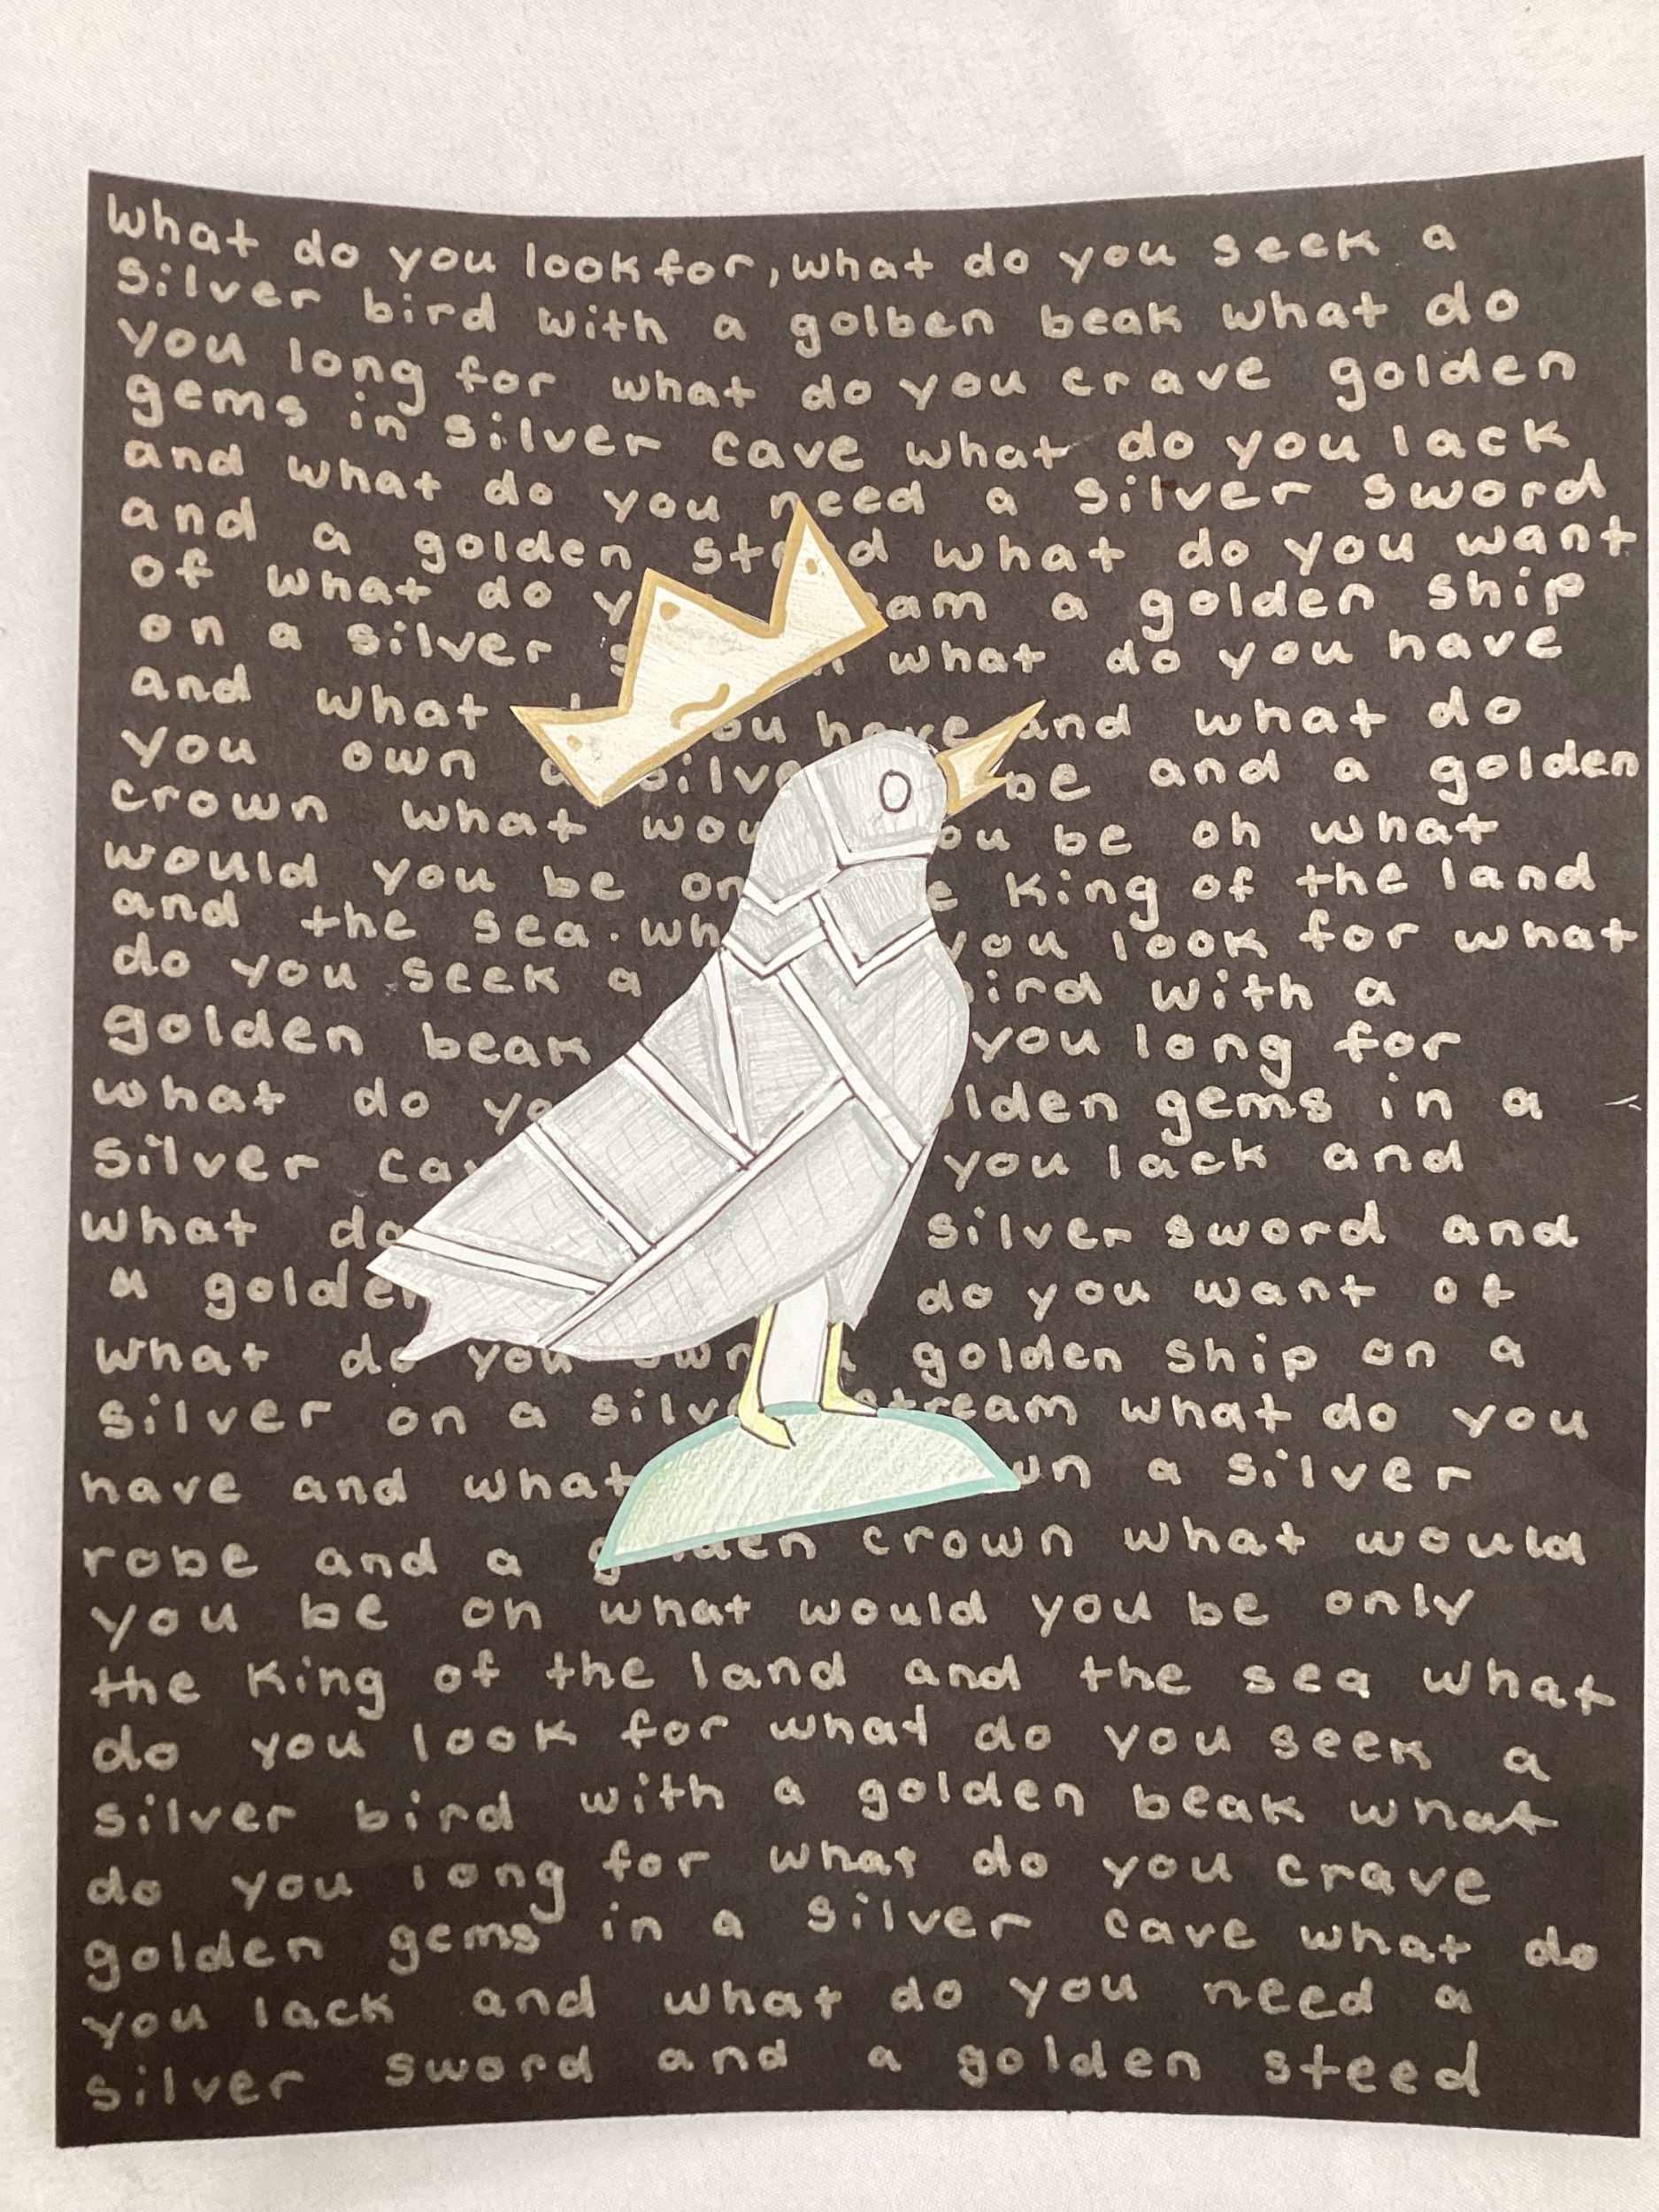 What do you look for, what do you seek a
silver bird with a golben beak what do
you long for what do you crave golden
gems in silver cave what do you lack
and what do you need a silver sword
and a golden st d what do you want
of what do y am a golden ship
on a silver s what do you have
and what ou have and what do
you own a silve be and a golden
crown what wou ou be oh what
would you be on e King of the land
and the sea. wh you look for what
do you seek a ird with a
golden beak you long for
what do yo lden gems in a
silver ca you lack and
what do silver sword and
a golden do you want of
what do you own a golden ship on a
silver on a silve stream what do you
have and what un a silver
robe and a g lden crown what would
you be oh what would you be only
the King of the land and the sea what
do you look for what do you seek a
silver bird with a golden beak what
do you long for what do you crave
golden gems in a silver cave what do
you lack and what do you need a
silver sword and a golden steed